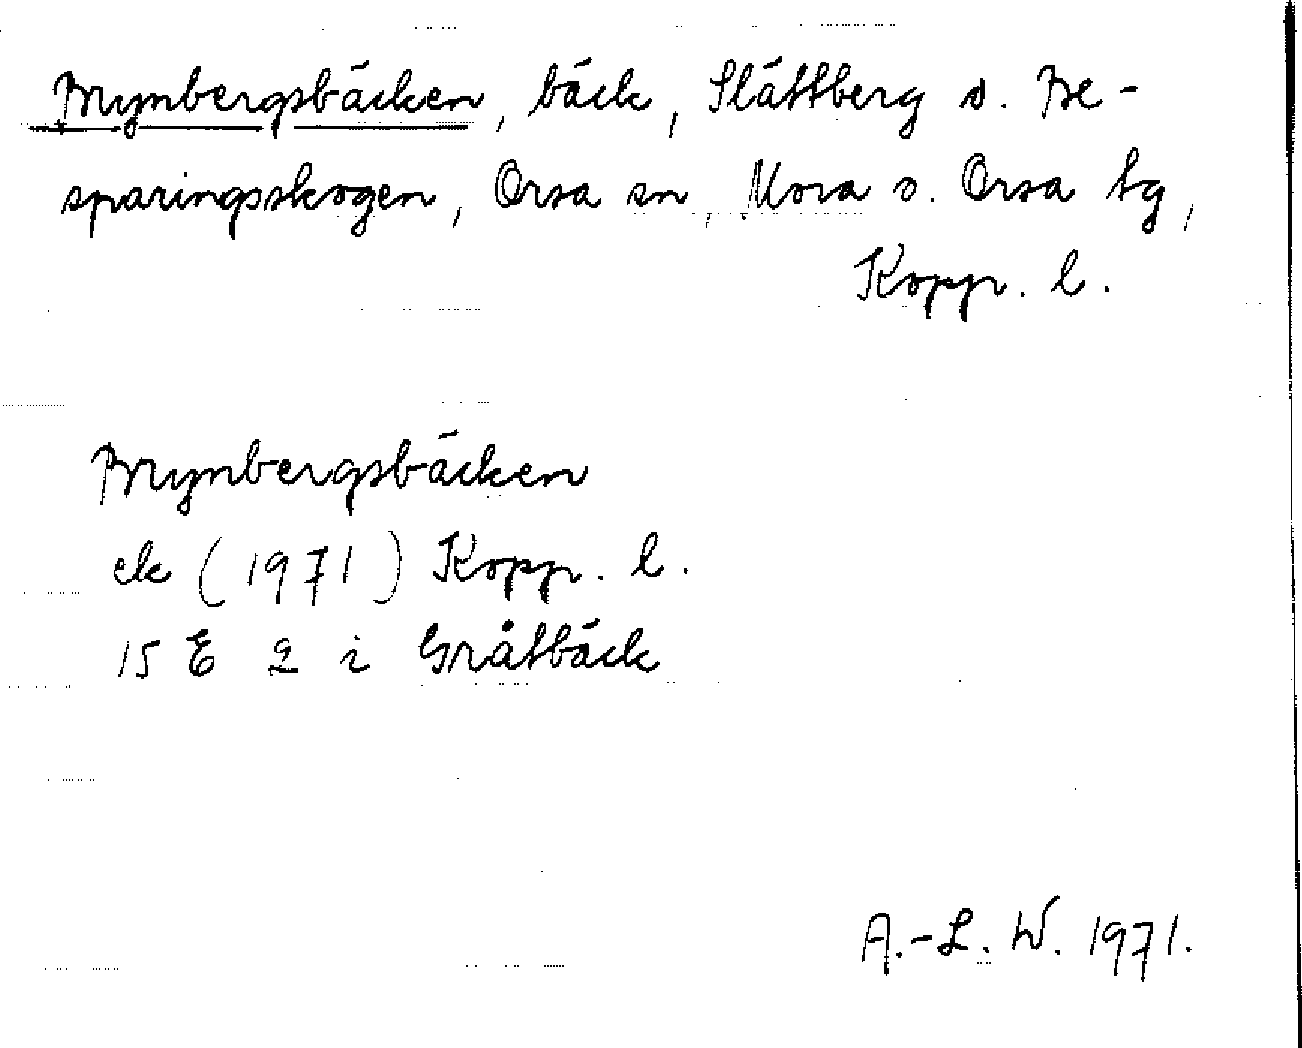 Brynbergsbäcken, bäck, Slättberg o. Be-
sparingsskogen, Orsa sn, Mora o. Orsa tg,
Kopp. l.
Brynbergsbäcken
ek (1971) Kopp. l.
15 E 2 i Gråtbäck
A.-L. W. 1971.